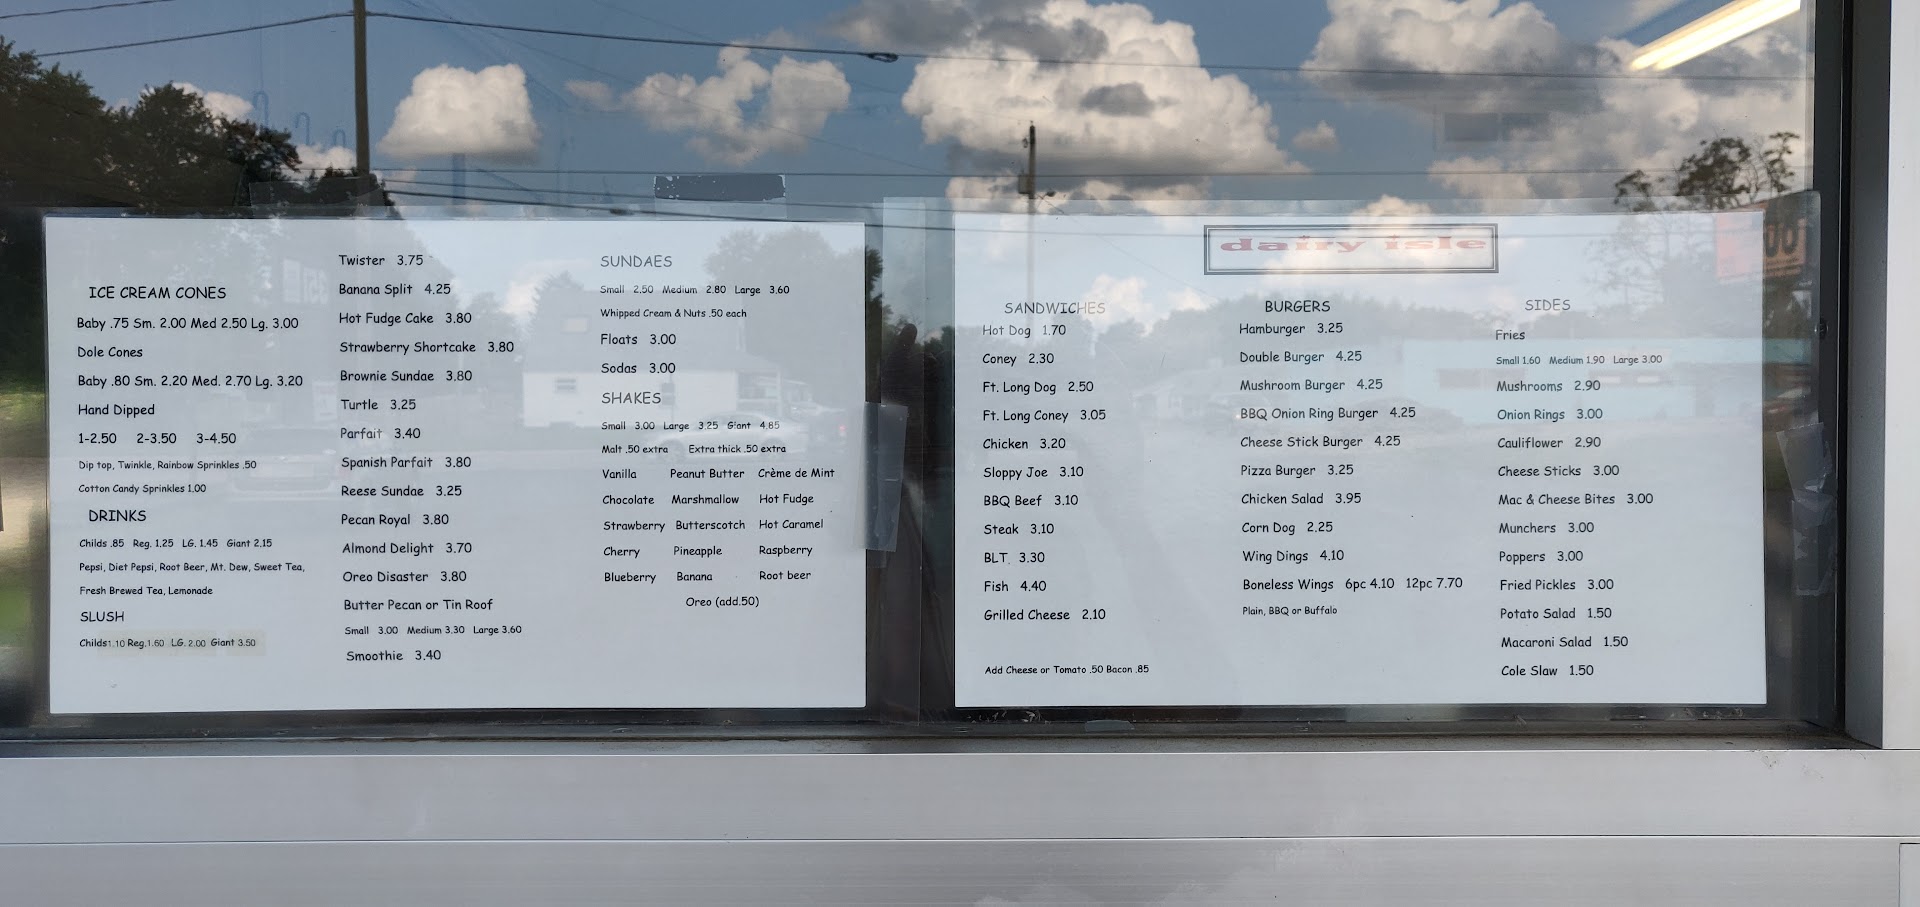 ICE CREAM CONES
Baby .75 Sm. 2.00 Med 2.50 Lg. 3.00
Dole Cones
Baby .80 Sm. 2.20 Med. 2.70 Lg. 3.20
Hand Dipped
1-2.50 2-3.50 3-4.50
Dip top, Twinkle, Rainbow Sprinkles .50
Cotton Candy Sprinkles 1.00
DRINKS
Childs .85 Reg. 1.25 LG. 1.45 Giant 2.15
Pepsi, Diet Pepsi, Root Beer, Mt. Dew, Sweet Tea,
Fresh Brewed Tea, Lemonade
SLUSH
Childs 1.10 Reg. 1.60 LG. 2.00 Giant 3.50
Twister 3.75
Banana Split 4.25
Hot Fudge Cake 3.80
Strawberry Shortcake 3.80
Brownie Sundae 3.80
Turtle 3.25
Parfait 3.40
Spanish Parfait 3.80
Reese Sundae 3.25
Pecan Royal 3.80
Almond Delight 3.70
Oreo Disaster 3.80
Butter Pecan or Tin Roof
Small 3.00 Medium 3.30 Large 3.60
Smoothie 3.40
SUNDAES
Small 2.50 Medium 2.80 Large 3.60
Whipped Cream & Nuts .50 each
Floats 3.00
Sodas 3.00
SHAKES
Small 3.00 Large 3.25 Giant 4.85
Malt .50 extra Extra thick .50 extra
Vanilla Peanut Butter Crème de Mint
Chocolate Marshmallow Hot Fudge
Strawberry Butterscotch Hot Caramel
Cherry Pineapple Raspberry
Blueberry Banana Root beer
Oreo (add.50)
dairy isle
SANDWICHES
Hot Dog 1.70
Coney 2.30
Ft. Long Dog 2.50
Ft. Long Coney 3.05
Chicken 3.20
Sloppy Joe 3.10
BBQ Beef 3.10
Steak 3.10
BLT. 3.30
Fish 4.40
Grilled Cheese 2.10
Add Cheese or Tomato .50 Bacon .85
BURGERS
Hamburger 3.25
Double Burger 4.25
Mushroom Burger 4.25
BBQ Onion Ring Burger 4.25
Cheese Stick Burger 4.25
Pizza Burger 3.25
Chicken Salad 3.95
Corn Dog 2.25
Wing Dings 4.10
Boneless Wings 6pc 4.10 12pc 7.70
Plain, BBQ or Buffalo
SIDES
Fries
Small 1.60 Medium 1.90 Large 3.00
Mushrooms 2.90
Onion Rings 3.00
Cauliflower 2.90
Cheese Sticks 3.00
Mac & Cheese Bites 3.00
Munchers 3.00
Poppers 3.00
Fried Pickles 3.00
Potato Salad 1.50
Macaroni Salad 1.50
Cole Slaw 1.50